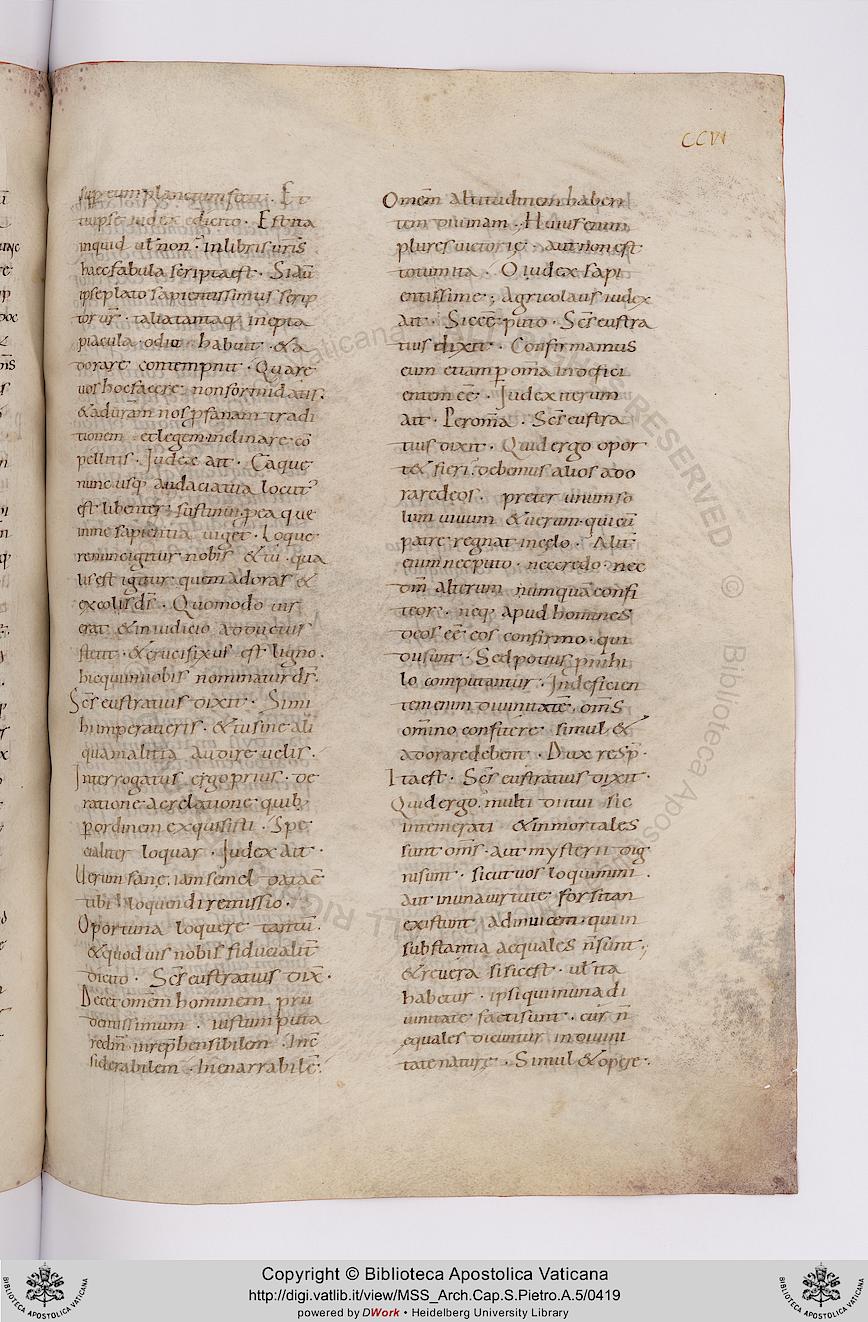 CCVI
sup eum planctum fecit · Et
tu ipse iudex edicito · Est ita
inquid ul̄ non · in libris uris̄
haec fabula scripta est · Si aū
ipse plato sapientissimus scrip
tor ur̄ · talia tantaq; inepta
piacula · odio habuit · & a
dorare contempnit · Quare
uos hoc facere non formidatis ·
& ad uram̄ nos p̄fanam tradi
tionem et legem inclinare co
pellitis · Judex ait · Ca que
nunc usq; audacia tua locut
est libenter sustinui · p ea que
inine sapientia uiget · Loque
renunc igitur nobis & tu · qua
lis est igitur quem adoras &
excolis ds̄ · Quomodo uis
erat & in iudicio adductus
stetit · & crucifixus est ligno ·
hic qui in uobis nominatur ds̄ ·
Scs̄ eustratius dixit · Si mi
hi imperaueris · & tu sine ali
qua malitia audire uelis ·
Interrogatus ergo prius · de
ratione ac relatione quib;
p ordinem exquisisti · Spe
cialiter loquar · Judex ait ·
Uerum sane · iam semel data ē
tibi loquendi remissio ·
Oportuna loquere tantū ·
& quod uis nobis fiducialit̄
dicito · Scs̄ eustratius dix̄ ·
Decet omēm hominem pru
dentissimum · iustum puta
re dm̄ · inrep̄hensibilem · Inc̄
siderabilem · Inenarrabilē ·
Omēm altitudinem haben
tem diuinam · Huius enim
plures uictorie · aut non est
totum ita · O iudex sapi
entissime ; Agricolaus iudex
ait · Sic eē puto · Scs̄ eustra
tius dixit · Confirmamus
eum etiam p omīa indefici
entem eē · Judex iterum
ait · Per omīa · Scs̄ eustra
tius dixit · Quid ergo opor
t& fieri · debemus alios ado
rare deos · preter unum so
lum uiuum & uerum · qui cū
patre regnat in celo · Alit̄
enim nec puto · nec credo · nec
dm̄ alterum numquā confi
teor · neq; apud homines
deos eē eos confirmo · qui
di sunt · Sed potius p nihi
lo computantur · Indeficien
tem enim diuinitatē · oms̄
omīno confitere simul &
adorare debent · Dux resp̄ ·
Ita est · Scs̄ eustratius dixit ·
Quid ergo · multi di tui sic
intemerati & inmortales
sunt oms̄ · aut mysterii dig
ni sunt · sicut uos loquimini ·
aut in una uirtute forsitan
existunt ad inuicem · qui in
substantia aequales n̄ sunt ·
& reuera si sic est · ul̄ ita
habetur · ipsi qui in una di
uinitate facti sunt · cur n̄
equales dicuntur in diuini
tate nature · Simul & opere ·
Copyright © Biblioteca Apostolica Vaticana
http://digi.vatlib.it/view/MSS_Arch.Cap.S.Pietro.A.5/0419
powered by DWork • Heidelberg University Library